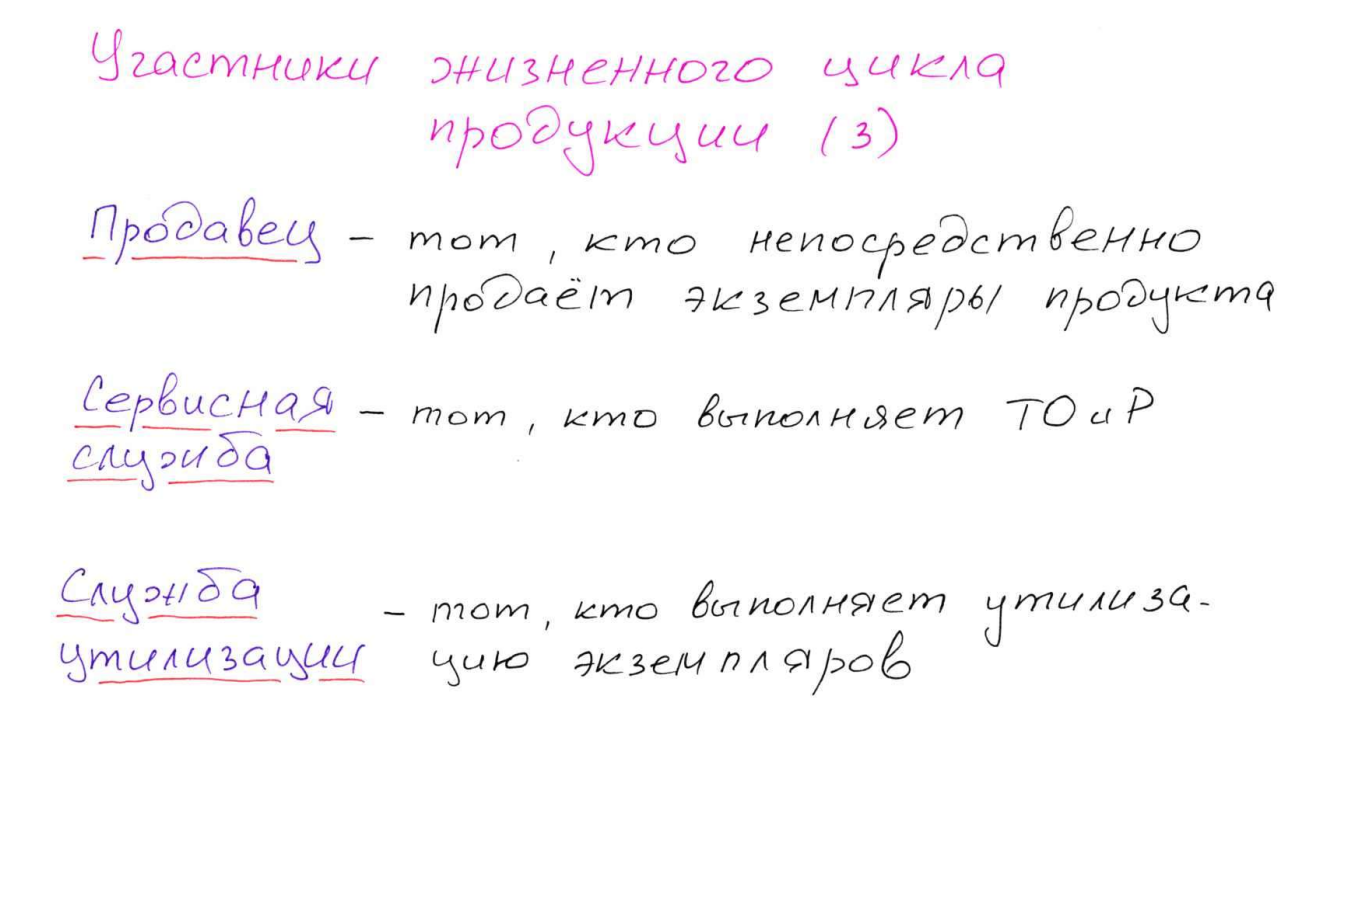 Участники жизненного цикла
продукции (3)
Продавец – тот, кто непосредственно
продаёт экземпляры продукта
Сервисная – тот, кто выполняет ТОиР
служба
Служба – тот, кто выполняет утилиза-
утилизации цию экземпляров